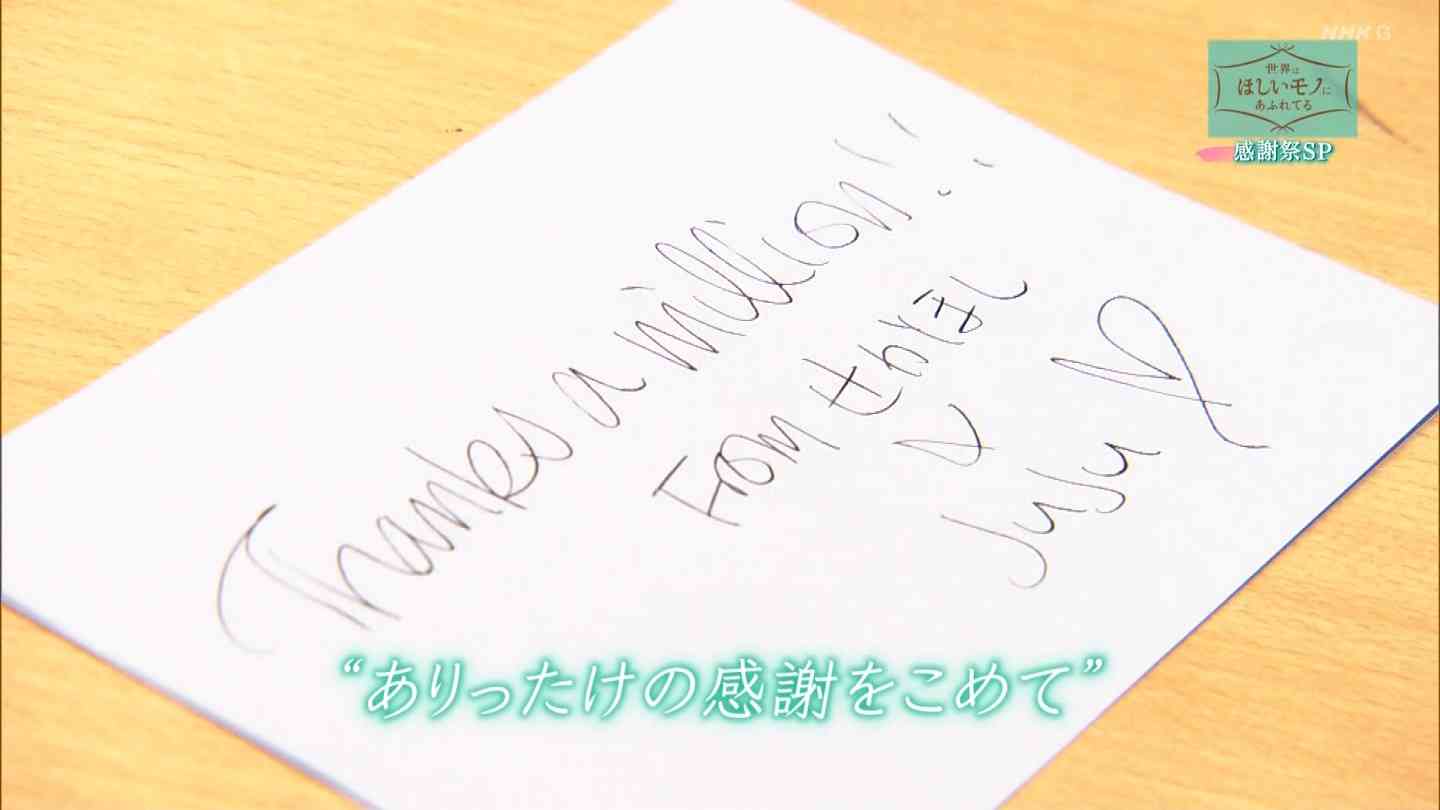 NHK G
世界は
ほしいモノに
あふれてる
感謝祭SP
Thanks a million!!
From
&
JuJu ♡
“ありったけの感謝をこめて”